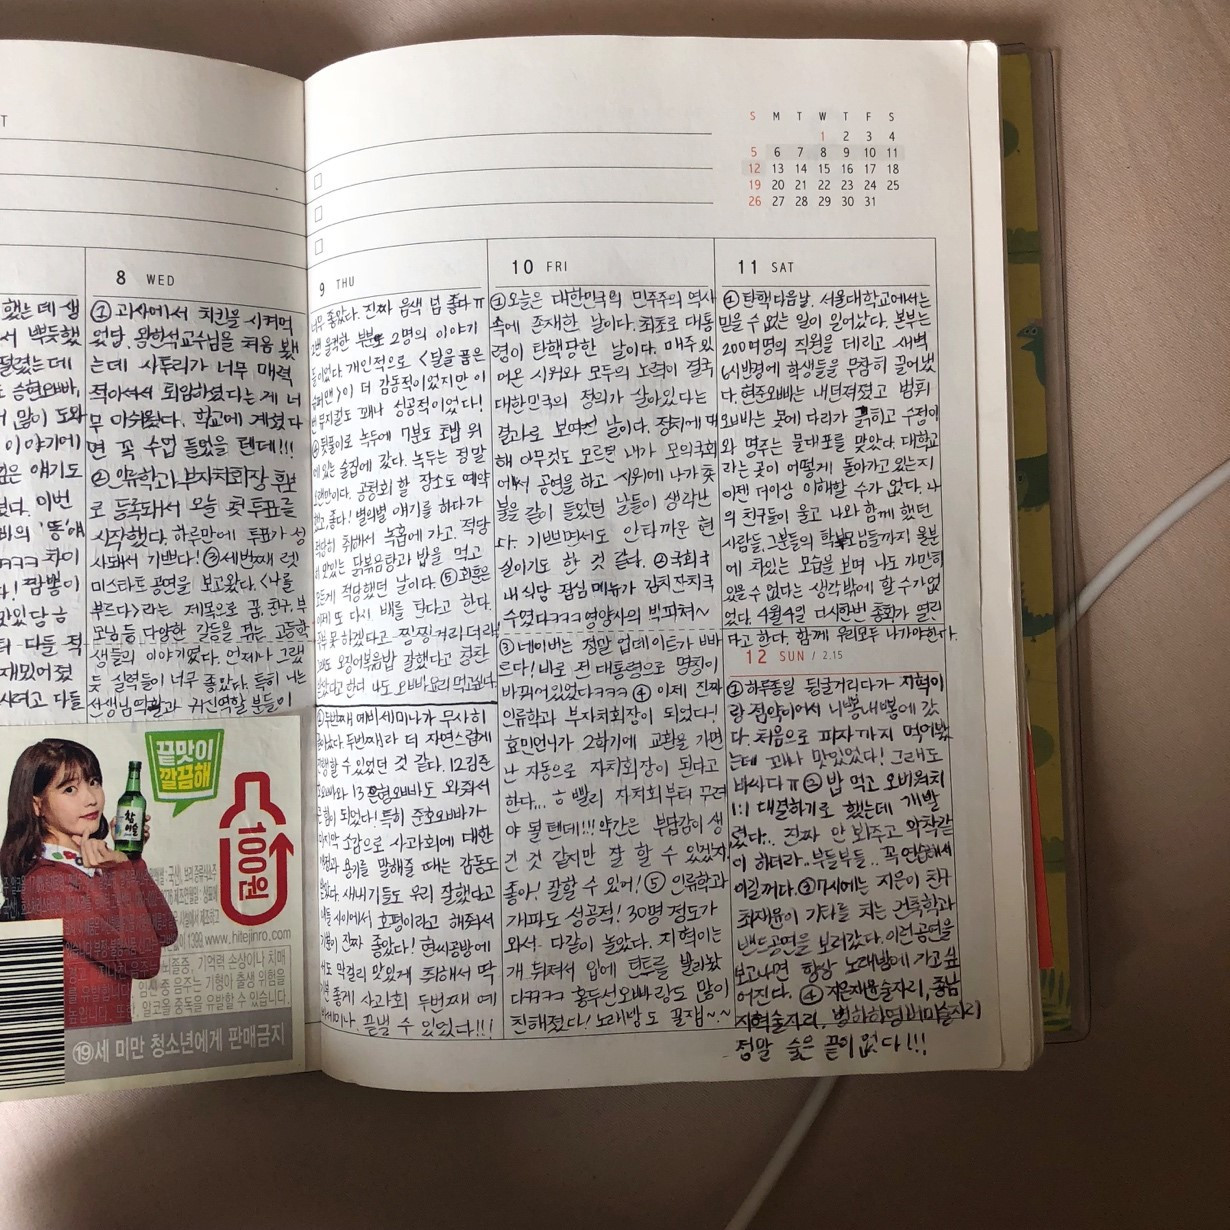 T
S M T W T F S
1 2 3 4
5 6 7 8 9 10 11
12 13 14 15 16 17 18
19 20 21 22 23 24 25
26 27 28 29 30 31
했는데 생
서 뿌듯했
떨렸는데
승현오빠,
많이 도와
이야기에
얘기도
이번
차이
다! 짬뽕이
다들 적
재밌어졌
사려고 다들
8 WED
① 과사에서 치킨을 시켜먹
었당. 왕한석교수님을 처음 뵀
는데 사투리가 너무 매력
적이셔서 퇴임하셨다는게 너
무 아쉬웠다. 학교에 계셨다
면 꼭 수업 들었을 텐데!!!
② 인류학과 부자치회장 후보
로 등록돼서 오늘 첫 투표를
시작했다. 하루만에 투표가 성
사돼서 기쁘다! ③ 세번째 렛
미스타트 공연을 보고왔다. <나를
부르다>라는 제목으로 꿈, 친구, 부
모님 등 다양한 갈등을 겪는 고등학
생들의 이야기였다. 언제나 그랬
듯 실력들이 너무 좋았다. 특히 나는
선생님역할과 귀신역할 분들이
9 THU
너무 좋았다. 진짜 음색 넘 좋다ㅠ
2번 울컥한 부분도 2명의 이야기
들이었다. 개인적으로 <불을 품은
>이 더 감동적이었지만 이
번 뮤지컬도 꽤나 성공적이었다!
④ 뒷풀이로 녹두에 7분도 초밥 위
에 있는 술집에 갔다. 녹두는 정말
오랜만이다. 공청회 할 장소도 예약
했고, 좋다! 별의별 얘기를 하다가
적당히 취해서 녹흠에 가고. 적당
히 맛있는 닭볶음탕과 밥을 먹고
적당했던 날이다. ⑤ 희훈은
이제 또 다시 배를 탄다고 한다.
못하겠다고 찡찡거리더라
그래도 오징어볶음밥 잘했다고 칭찬
받았다고 한다 나도 오빠 요리 먹고싶다
① 두번째 예비세미나가 무사히
끝났다. 두번째라 더 자연스럽게
진행할 수 있었던 것 같다. 12김준
호오빠와 13 오빠도 와줘서
큰 힘이 되었다! 특히 준호오빠가
마지막 소감으로 사과회에 대한
과 용기를 말해줄 때는 감동도
받았다. 새내기들도 우리 잘했다고
애들 사이에서 호평이라고 해줘서
기분이 진짜 좋았다! 현씨공방에
서도 막걸리 맛있게 취해서 딱
기분 좋게 사과회 두번째 예
비세미나. 끝낼 수 있었다!!!
10 FRI
① 오늘은 대한민국의 민주주의 역사
속에 존재한 날이다. 최초로 대통
령이 탄핵당한 날이다. 매주 있
어온 시위와 모두의 노력이 결국
대한민국의 정의가 살아있다는
결과로 보여진 날이다. 정치에 대
해 아무것도 모르던 내가 모의국회
에서 공연을 하고 시위에 나가 촛
불을 같이 들었던 날들이 생각난
다. 기쁘면서도 안타까운 현
실이기도 한 것 같다. ② 국회 국
내식당 점심 메뉴가 김치잔치국
수였다ㅋㅋㅋ영양사의 빅피쳐~
③ 네이버는 정말 업데이트가 빠
르다! 바로 전 대통령으로 명칭이
바뀌어있었다ㅋㅋㅋ ④ 이제 진짜
인류학과 부자치회장이 되었다!
효민언니가 2학기에 교환을 가면
난 자동으로 자치회장이 된다고
한다... ㅎ 빨리 자치회부터 꾸려
야 될텐데!!! 약간은 부담감이 생
긴 것 같지만 잘 할 수 있겠지
좋아! 잘할 수 있어! ⑤ 인류학과
개파도 성공적! 30명 정도가
와서 다같이 놀았다. 지혁이는
개 뒤져서 입에 틴트를 발라놨
다ㅋㅋㅋ 홍두선오빠랑도 많이
친해졌다! 노래방도 꿀잼~.~
11 SAT
① 탄핵 다음날, 서울대학교에서는
믿을 수 없는 일이 일어났다. 본부는
200여명의 직원을 데리고 새벽
6시반경에 학생들을 무참히 끌어냈
다. 현준오빠는 내던져졌고 범휘
오빠는 못에 다리가 긁히고 수정이
와 명주는 물대포를 맞았다. 대학교
라는 곳이 어떻게 돌아가고 있는지
이젠 더이상 이해할 수가 없다. 나
의 친구들이 울고 나와 함께 했던
사람들, 그분들의 학부모님들까지 울분
에 차있는 모습을 보며 나도 가만히
있을 수 없다는 생각밖에 할 수가 없
었다. 4월 4일 다시한번 총회가 열린
다고 한다. 함께 우리모두 나가야한다.
12 SUN / 2.15
① 하루종일 뒹굴거리다가 지혁이
랑 점약이어서 니뽕내뽕에 갔
다. 처음으로 피자까지 먹어봤
는데 꽤나 맛있었다! 그래도
비싸다ㅠ ② 밥 먹고 오버워치
1:1 대결하기로 했는데 개발
렸다... 진짜 안 봐주고 악착같
이 하더라.. 부들부들.. 꼭 연습해서
이길꺼다. ③ 7시에는 지은이 친구
최재윤이 기타를 치는 건축학과
밴드공연을 보러갔다. 이런공연을
보고나면 항상 노래방에 가고싶
어진다. ④ 지은재윤술자리, 충남
지혁술자리, 범하하명버미술자리
정말 술은 끝이 없다!!!
끝맛이
깔끔해
참이슬
100원
www.hitejinro.com
뇌졸중, 기억력 손상이나 치매
임신 중 음주는 기형아 출생 위험을
또한, 알코올 중독을 유발할 수 있습니다.
⑲세 미만 청소년에게 판매금지